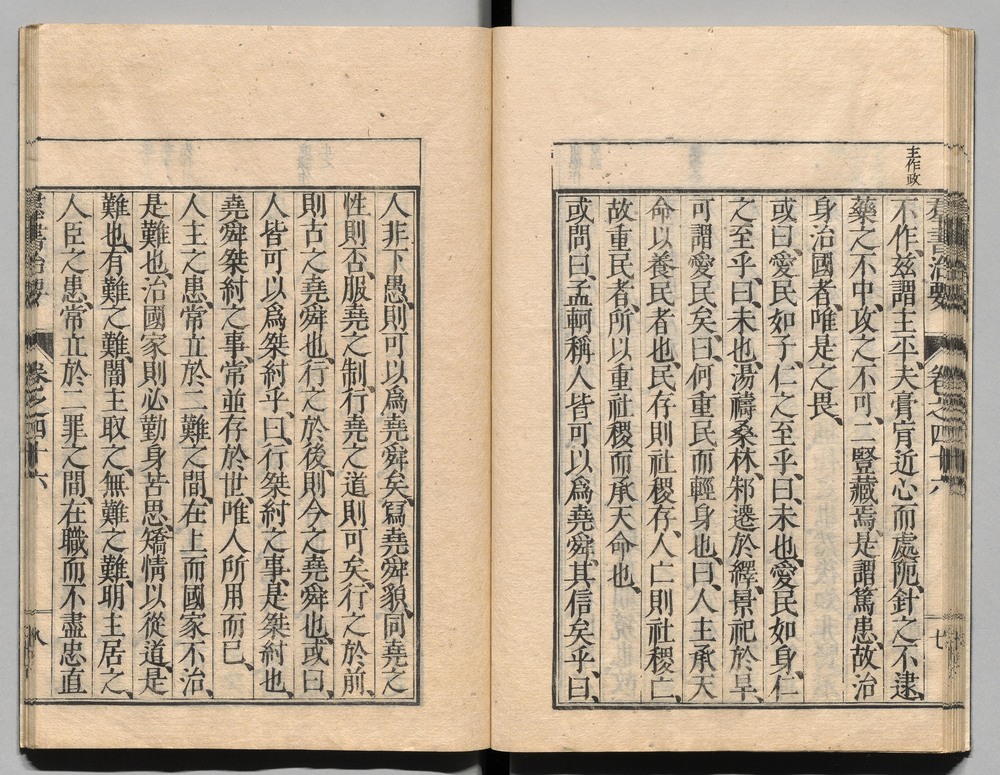 主作政
羣書治要 卷之四十六 七
不作、茲謂主平、夫膏肓近心而處阨、針之不逮、
藥之不中、攻之不可、二豎藏焉、是謂篤患、故治
身治國者、唯是之畏、
或曰、愛民如子、仁之至乎、曰、未也、愛民如身、仁
之至乎、曰、未也、湯禱桑林、邾遷於繹、景祀於旱、
可謂愛民矣、曰、何重民而輕身也、曰、人主承天
命以養民者也、民存則社稷存、人亡則社稷亡、
故重民者、所以重社稷而承天命也、
或問曰、孟軻稱人皆可以爲堯舜、其信矣乎、曰、
人非下愚、則可以爲堯舜矣、寫堯舜貌、同堯之
性則否、服堯之制、行堯之道則可矣、行之於前、
則古之堯舜也、行之於後、則今之堯舜也、或曰、
人皆可以爲桀紂乎、曰、行桀紂之事、是桀紂也、
堯舜桀紂之事、常並存於世、唯人所用而已、
人主之患、常立於二難之間、在上而國家不治、
是難也、治國家則必勤身苦思、矯情以從道、是
難也、有難之難、闇主取之、無難之難、明主居之、
人臣之患、常立於二罪之間、在職而不盡忠直
羣書治要 卷之四十六 八